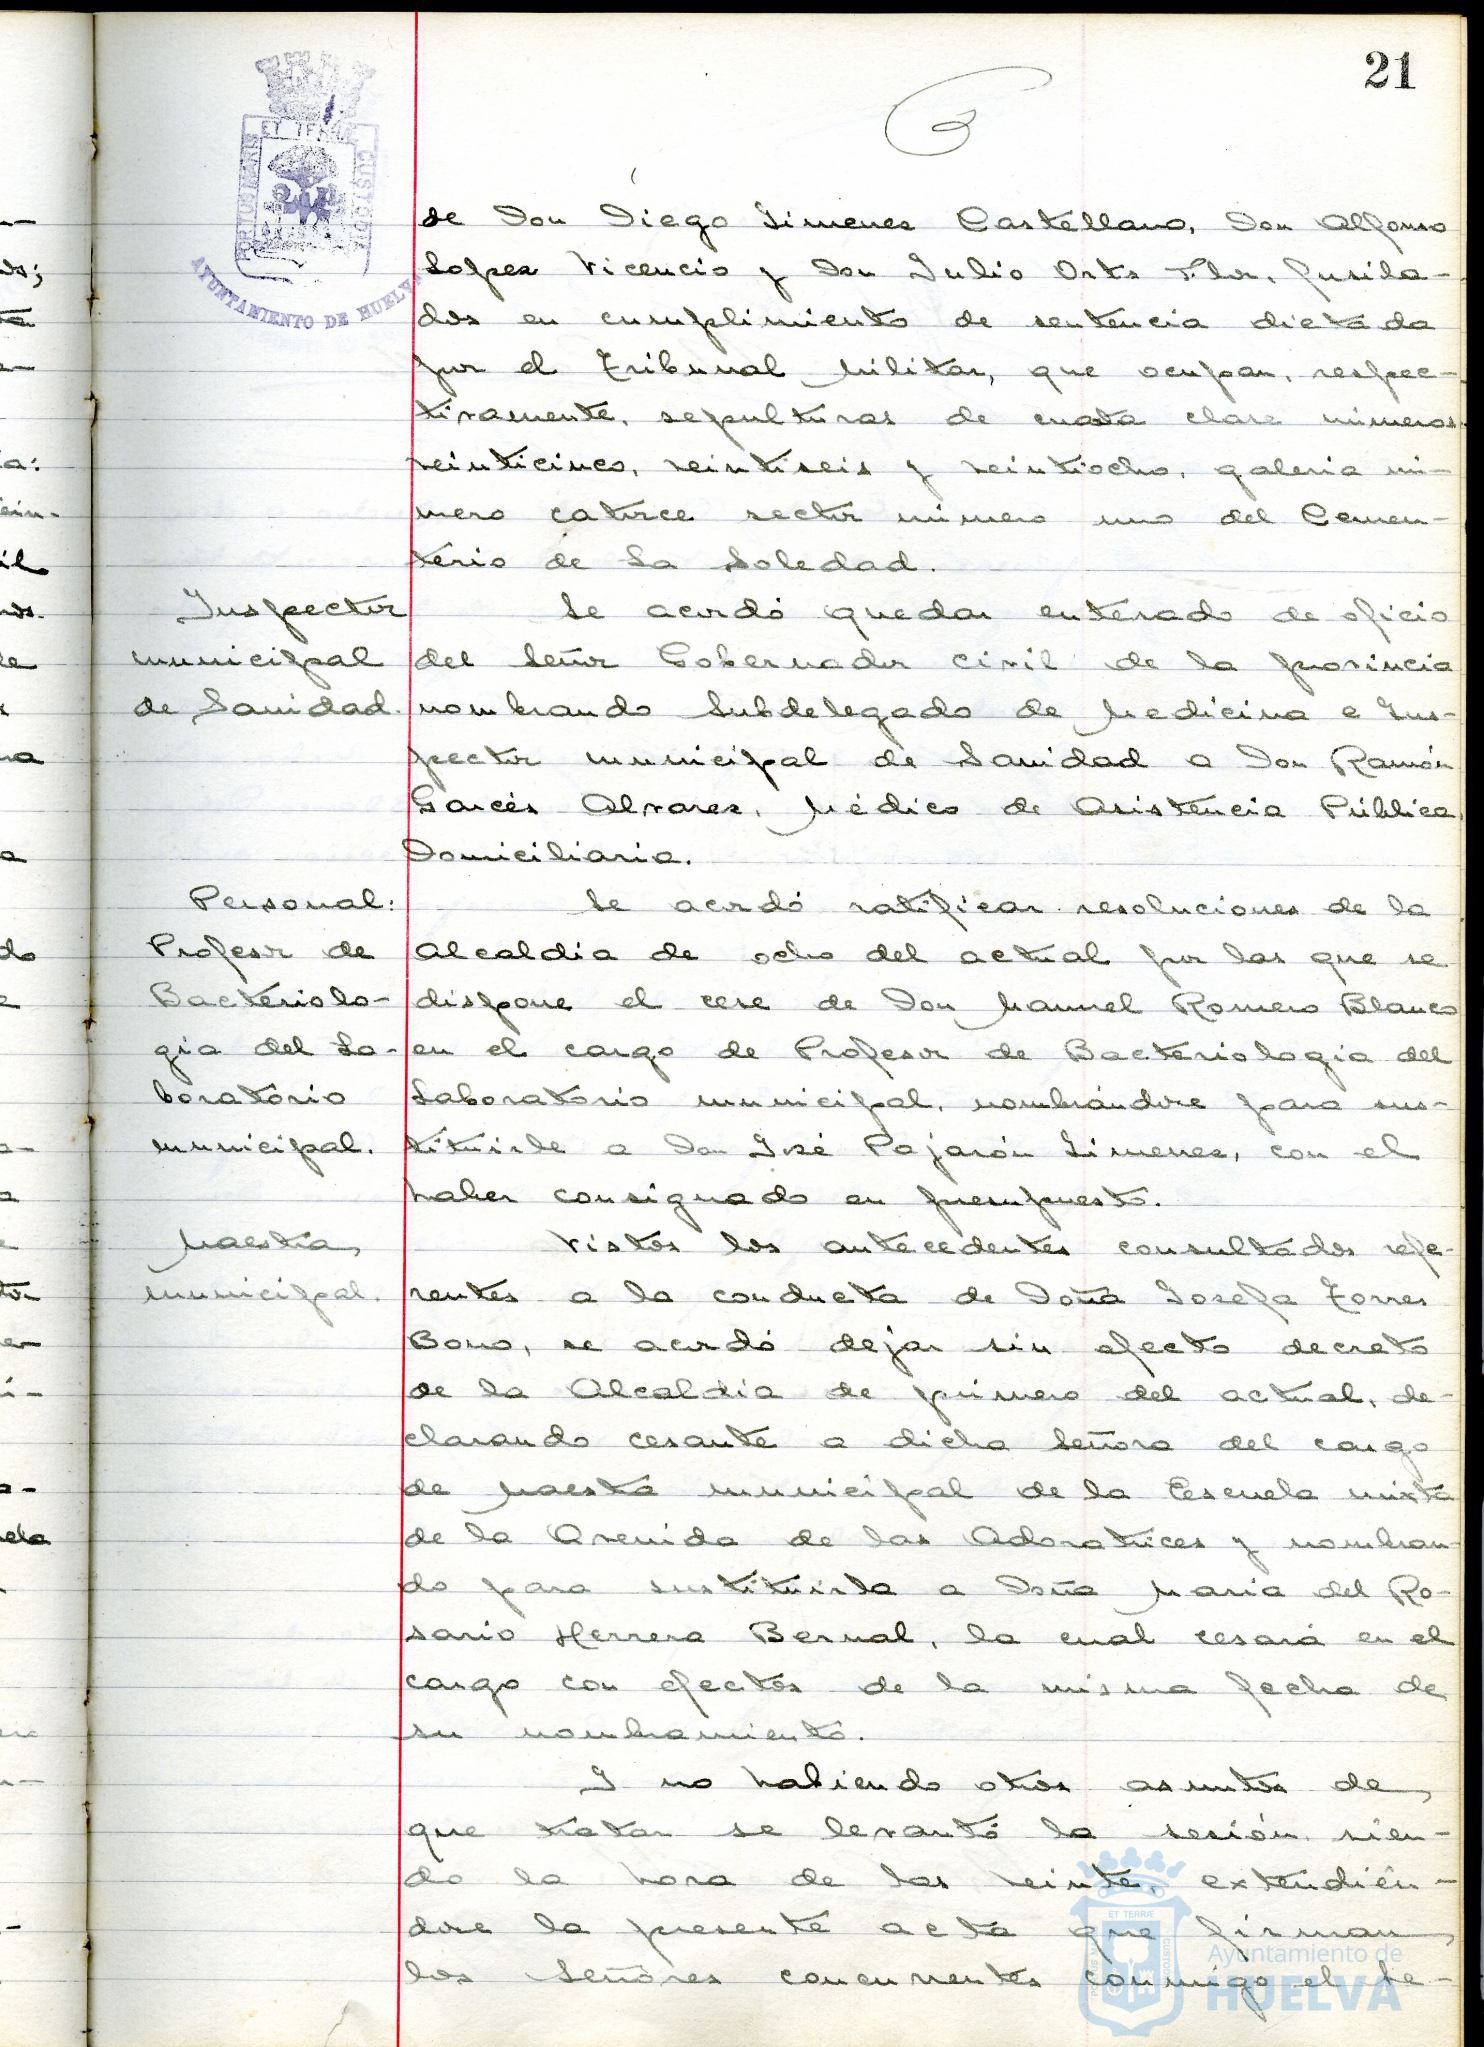 21
PORTUS MARIS ET TERRÆ CUSTODIA
AYUNTAMIENTO DE HUELVA
de Don Diego Jimenez Castellano, Don Alfonso
Lopez Vicencio y Don Julio Orts Flor, fusila-
dos en cumplimiento de sentencia dictada
por el Tribunal Militar, que ocupan, respec-
tivamente, sepulturas de cuarta clase números
veinticinco, veintiseis y veintiocho, galeria nú-
mero catorce sector número uno del Cemen-
terio de La Soledad.
Inspector
municipal
de Sanidad.
Se acordó quedar enterado de oficio
del Señor Gobernador civil de la provincia
nombrando Subdelegado de Medicina e Ins-
pector municipal de Sanidad a Don Ramón
Garcés Alvarez, Médico de Asistencia Pública
Domiciliaria.
Personal:
Profesor de
Bacteriolo-
gia del La-
boratorio
municipal.
Se acordó ratificar resoluciones de la
Alcaldia de ocho del actual por las que se
dispone el cese de Don Manuel Romero Blanco
en el cargo de Profesor de Bacteriologia del
Laboratorio municipal, nombrándose para sus-
tituirle a Don José Pajarón Jimenez, con el
haber consignado en presupuesto.
Maestra
municipal.
Vistos los antecedentes consultados refe-
rentes a la conducta de Doña Josefa Torres
Bono, se acordó dejar sin efecto decreto
de la Alcaldia de primero del actual, de-
clarando cesante a dicha Señora del cargo
de Maestra municipal de la Escuela mixta
de la Avenida de las Adoratrices y nombran-
do para sustituirla a Doña Maria del Ro-
sario Herrera Bernal, la cual cesará en el
cargo con efectos de la misma fecha de
su nombramiento.
Y no habiendo otros asuntos de
que tratar se levantó la sesión, sien-
do la hora de las veinte, extendién-
dose la presente acta que firman
los Señores concurrentes conmigo el Se-
Ayuntamiento de
HUELVA